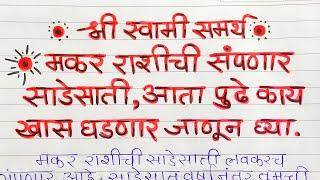 श्री स्वामी समर्थ
मकर राशीची संपणार
साडेसाती, आता पुढे काय
खास घडणार जाणून घ्या.
मकर राशीची साडेसाती लवकरच
संपणार आहे. साडेसात वर्षानंतर तुमची